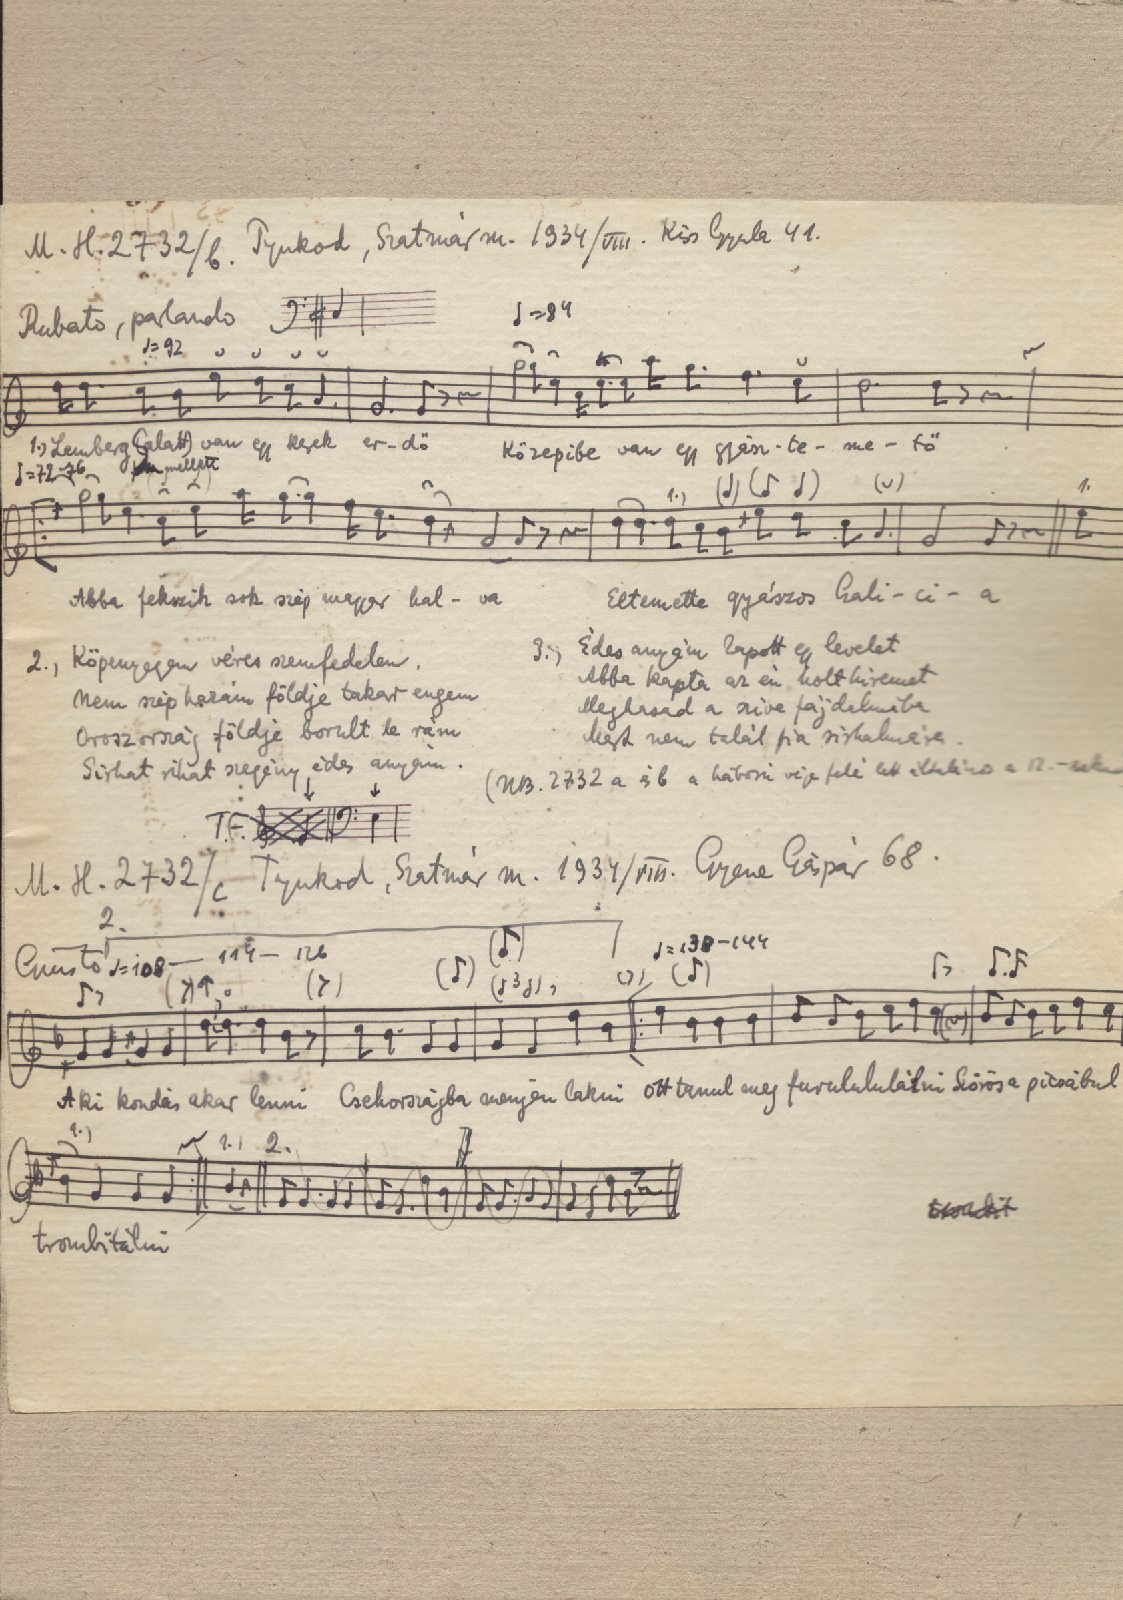 M. H. 2732/b. Tyukod, Szatmár m. 1934/VIII. Kiss Gyula 41.
Rubato, parlando
♩=92
♩=84
1.) Lemberg (alatt) van egy kerek er-dő Közepibe van egy gyász-te-me-tő
♩=72-76 mellett
1.) 1.
Abba fekszik sok szép magyar hal-va Eltemette gyászos Gali-ci-a
2., Köpenyegem véres szemfedelem.
Nem szép hazám földje takar engem
Oroszország földje borult le rám
Sirhat rihat szegény édes anyám.
3., Édes anyám kapott egy levelet
Abba kapta az én holt hiremet
Meghasad a szive fájdalmába
Mert nem talál fia sirhalmára.
(NB. 2732 a és b a háború vége felé lett általános a 12.-
T.F.
M. H. 2732/c Tyukod, Szatmár m. 1934/VIII. Gyene Gáspár 68.
2.
Giusto ♩=108 — 114 — 126
♩=138-144
Aki kondás akar lenni Csehországba menjen lakni Ott tanul meg furulululálni Szőrös a picsábul
1.) 1.) 2.
trombitálni